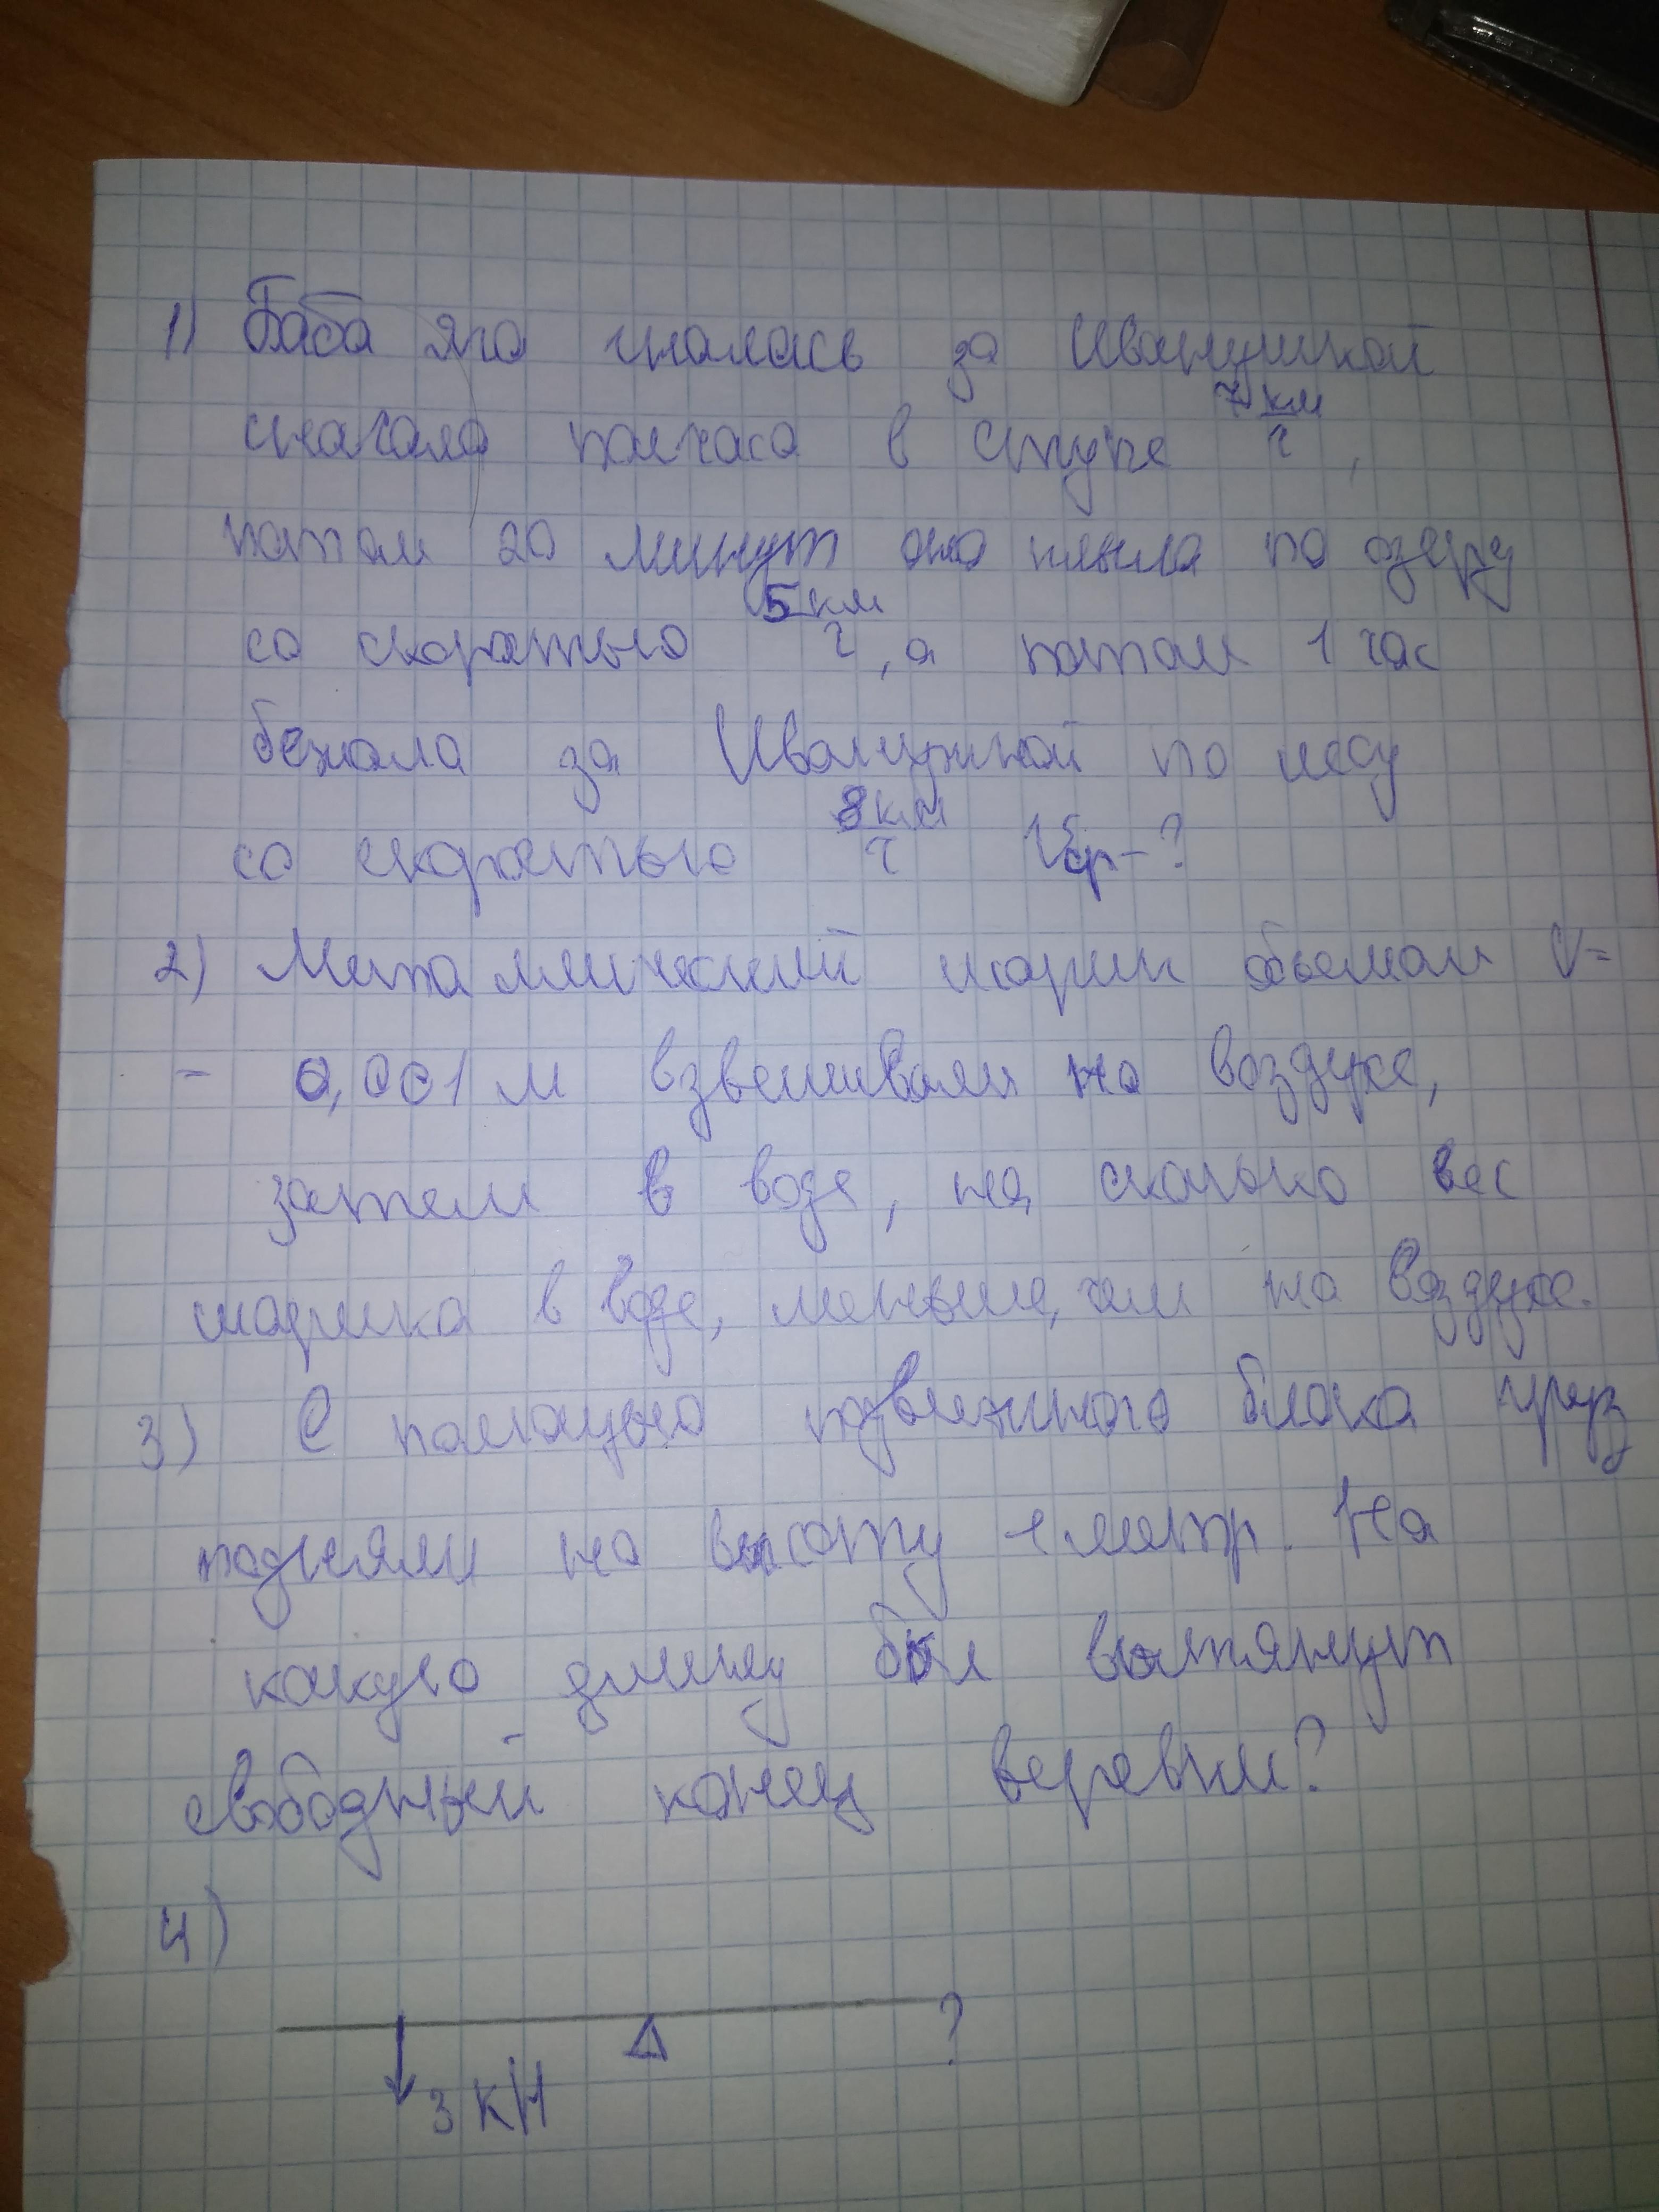 1) Баба яга гналась за Иванушкой
сначала полчаса в ступе 7 км/ч,
потом 20 минут она плыла по озеру
со скоростью 5 км/ч, а потом 1 час
бежала за Иванушкой по лесу
со скоростью 8 км/ч Vср-?
2) Металлический шарик объемом V=
- 0,001 м взвешивали на воздухе,
затем в воде, на сколько вес
шарика в воде, меньше, чем на воздухе.
3) С помощью подвижного блока груз
подняли на высоту 1 метр. На
какую длину был вытянут
свободный конец веревки?
4)
?
3 кН